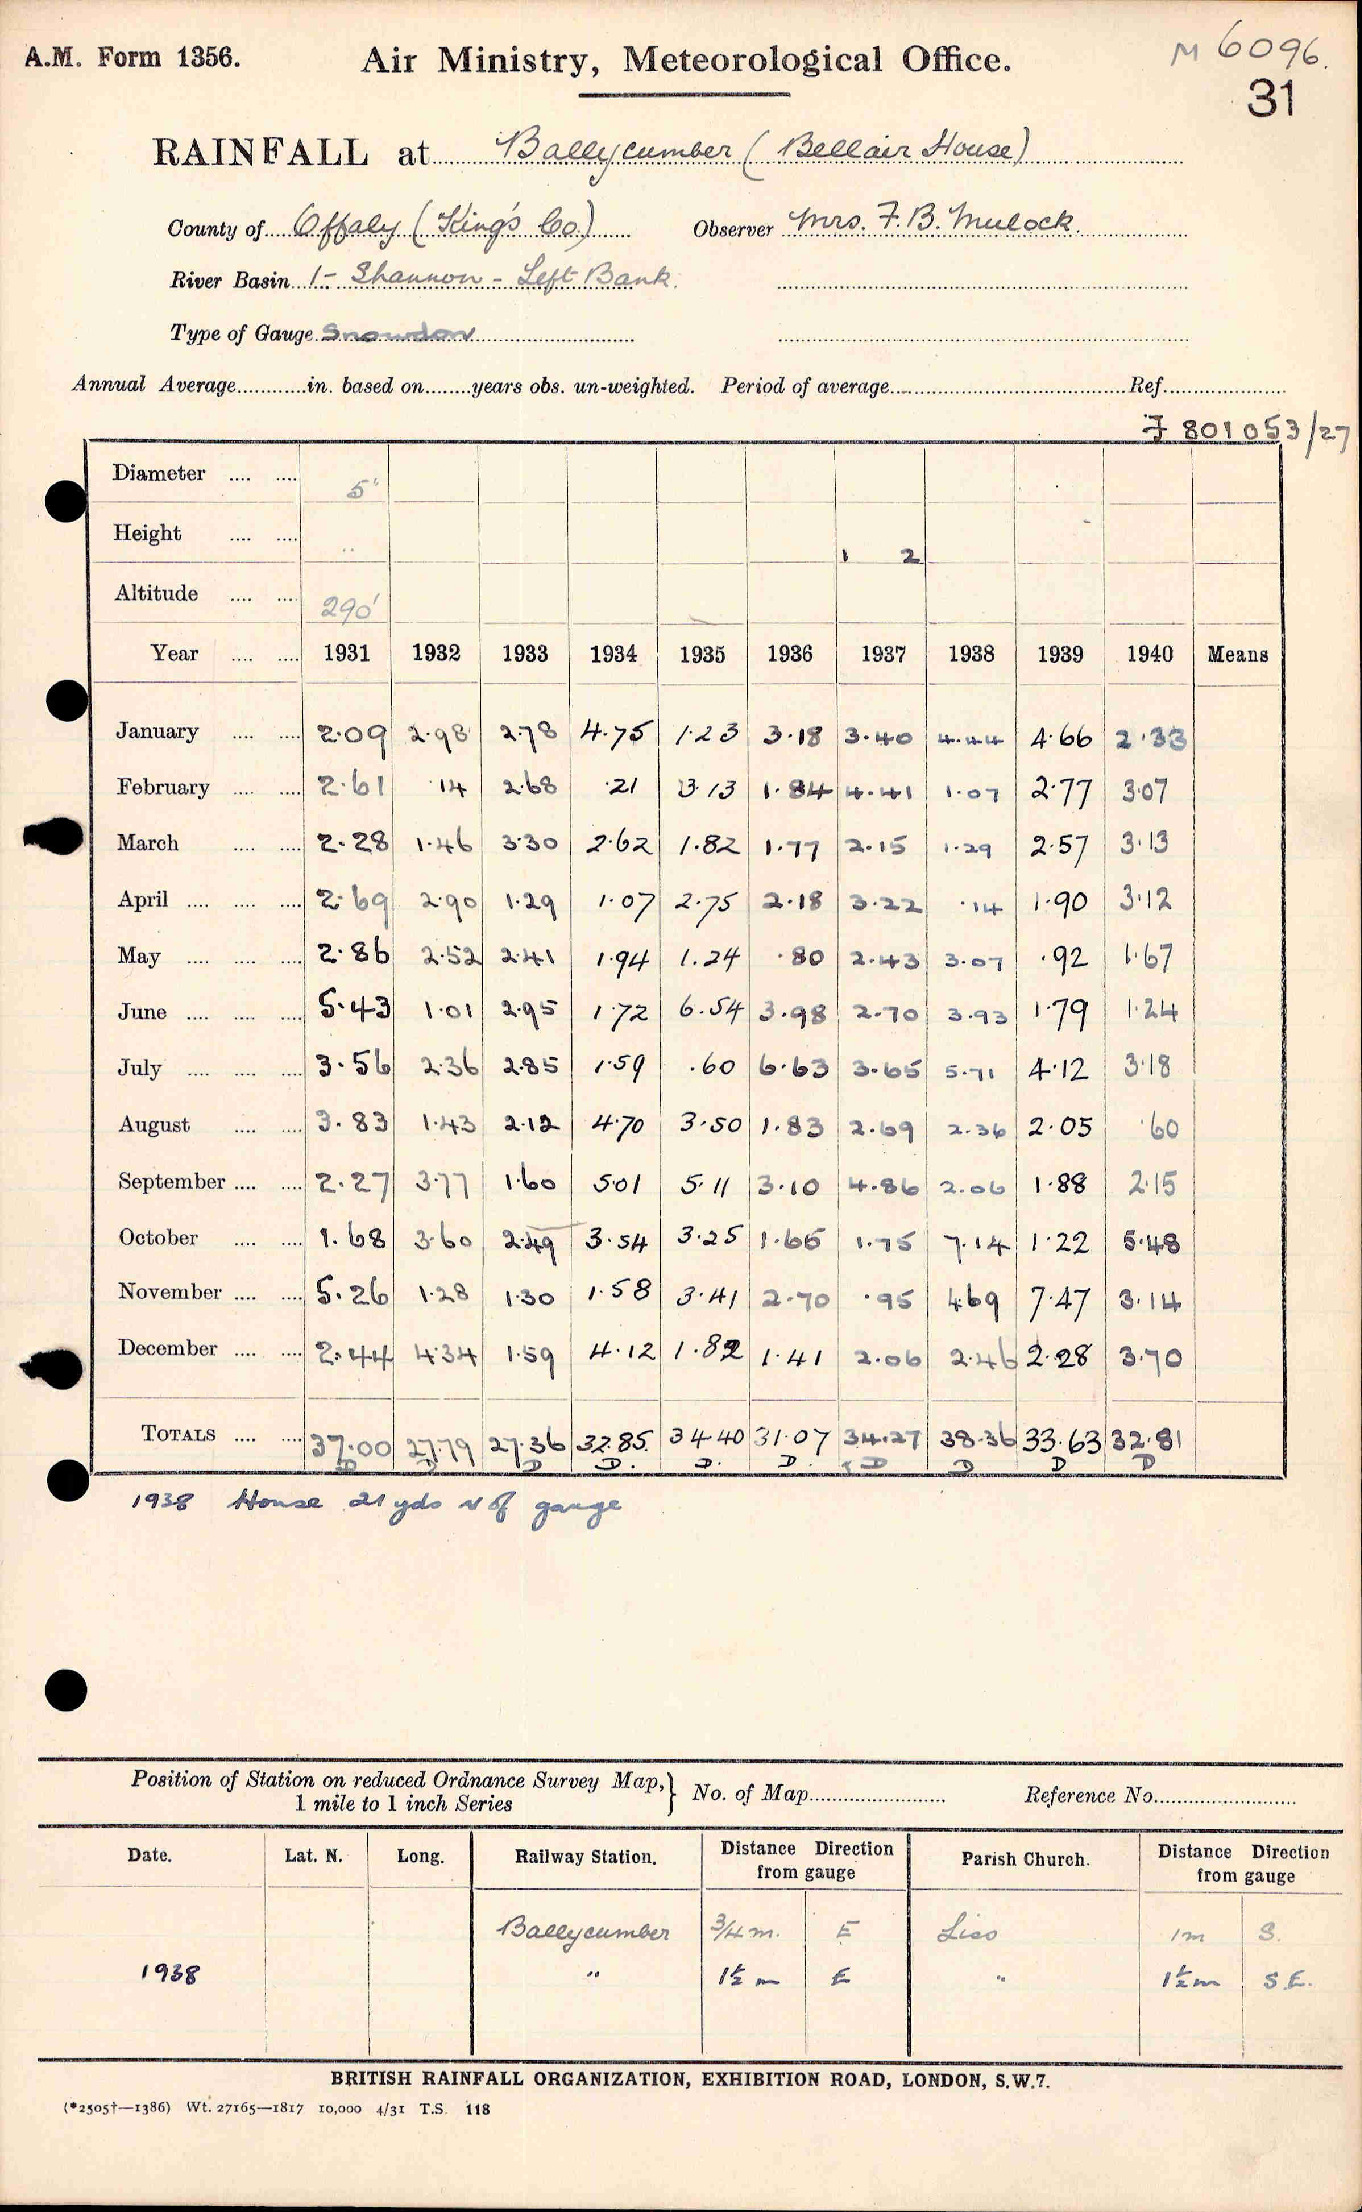 A.M. Form 1356. Air Ministry, Meteorological Office. M 6096.
31
RAINFALL at Ballycumber (Bellair House)
County of Offaly (King's Co.) Observer Mrs. F. B. Mulock.
River Basin 1- Shannon - Left Bank.
Type of Gauge Snowdon
Annual Average in. based on years obs. un-weighted. Period of average Ref.
J 801053/27
Diameter 5"
Height 1 2
Altitude 290'
Year 1931 1932 1933 1934 1935 1936 1937 1938 1939 1940 Means
January 2.09 2.98 2.78 4.75 1.23 3.18 3.40 4.44 4.66 2.33
February 2.61 .14 2.68 .21 3.13 1.84 4.41 1.07 2.77 3.07
March 2.28 1.46 3.30 2.62 1.82 1.77 2.15 1.29 2.57 3.13
April 2.69 2.90 1.29 1.07 2.75 2.18 3.22 .14 1.90 3.12
May 2.86 2.52 2.41 1.94 1.24 .80 2.43 3.07 .92 1.67
June 5.43 1.01 2.95 1.72 6.54 3.98 2.70 3.93 1.79 1.24
July 3.56 2.36 2.85 1.59 .60 6.63 3.65 5.71 4.12 3.18
August 3.83 1.43 2.12 4.70 3.50 1.83 2.69 2.36 2.05 .60
September 2.27 3.77 1.60 5.01 5.11 3.10 4.86 2.06 1.88 2.15
October 1.68 3.60 2.49 3.54 3.25 1.65 1.75 7.14 1.22 5.48
November 5.26 1.28 1.30 1.58 3.41 2.70 .95 4.69 7.47 3.14
December 2.44 4.34 1.59 4.12 1.82 1.41 2.06 2.46 2.28 3.70
TOTALS 37.00 27.79 27.36 32.85 34.40 31.07 34.27 38.36 33.63 32.81
D D D D. D. D D D D D
1938 House 21 yds N of gauge
Position of Station on reduced Ordnance Survey Map, 1 mile to 1 inch Series } No. of Map Reference No.
Date. Lat. N. Long. Railway Station. Distance Direction from gauge Parish Church. Distance Direction from gauge
Ballycumber 3/4 m. E Liss 1m S.
1938 " 1½ m E " 1½ m S.E.
BRITISH RAINFALL ORGANIZATION, EXHIBITION ROAD, LONDON, S.W.7.
(*2505†—1386) Wt. 27165—1817 10,000 4/31 T.S. 118